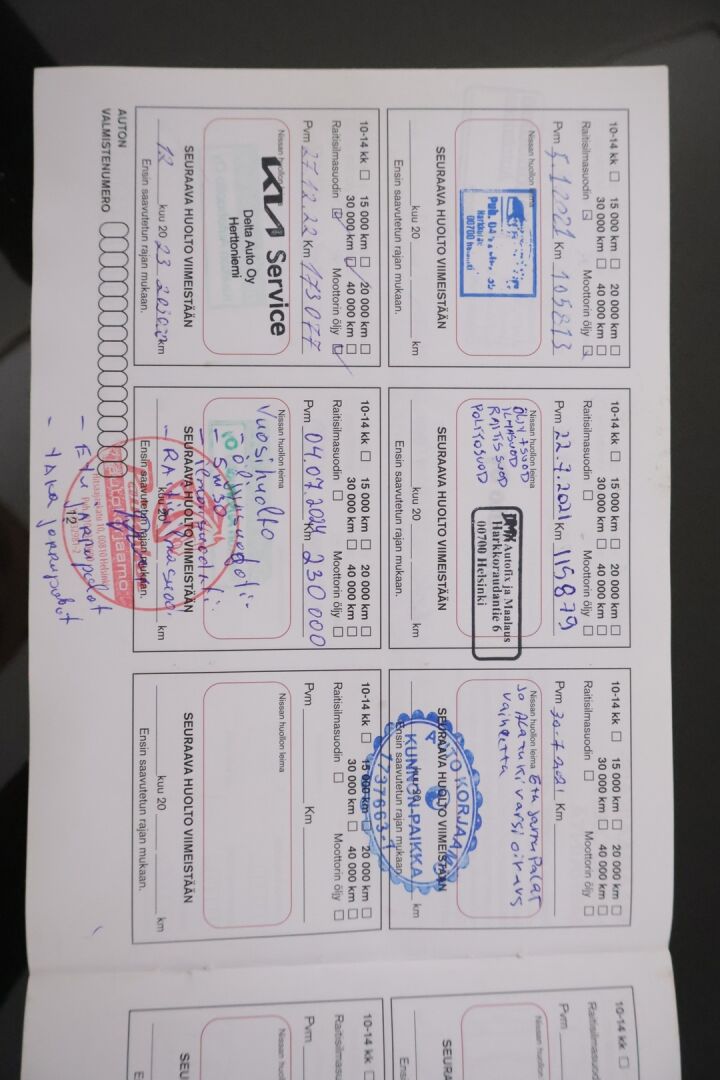 10-14 kk 15 000 km 20 000 km
30 000 km 40 000 km
Raitisilmasuodin Moottorin öljy
Pvm 5.1.2021 Km 105813
Nissan huollon leima
00700
SEURAAVA HUOLTO VIIMEISTÄÄN
kuu 20 km
Ensin saavutetun rajan mukaan.
10-14 kk 15 000 km 20 000 km
30 000 km 40 000 km
Raitisilmasuodin Moottorin öljy
Pvm 22.7.2021 Km 115879
Nissan huollon leima
ÖLJY + SUOD
ILMASUOD
RAITISSUOD
POLTTOSUOD
Autofix ja Maalaus
Harkkoraudantie 6
00700 Helsinki
SEURAAVA HUOLTO VIIMEISTÄÄN
kuu 20 km
Ensin saavutetun rajan mukaan.
10-14 kk 15 000 km 20 000 km
30 000 km 40 000 km
Raitisilmasuodin Moottorin öljy
Pvm 30.7.2021 Km
Nissan huollon leima
Etu jarrupalat
Ja Alatukivarsi oikeus
vaihettu
AUTO KORJAAMO
KUNNON PAIKKA
SEURAAVA HUOLTO VIIMEISTÄÄN
km
Ensin saavutetun rajan mukaan.
10-14 kk 15 000 km 20 000 km
30 000 km 40 000 km
Raitisilmasuodin Moottorin öljy
Pvm 27.12.22 Km 173077
Nissan huollon leima
KIA Service
Delta Auto Oy
Herttoniemi
SEURAAVA HUOLTO VIIMEISTÄÄN
12 kuu 20 23 km
Ensin saavutetun rajan mukaan.
10-14 kk 15 000 km 20 000 km
30 000 km 40 000 km
Raitisilmasuodin Moottorin öljy
Pvm 04.07.2024 Km 230 000
Nissan huollon leima
Vuosihuolto
- 5W30
SEURAAVA HUOLTO VIIMEISTÄÄN
kuu 20 km
Ensin saavutetun rajan mukaan.
- Etu jarrupalat
- Taka jarrupalat
10-14 kk 15 000 km 20 000 km
30 000 km 40 000 km
Raitisilmasuodin Moottorin öljy
Pvm Km
Nissan huollon leima
SEURAAVA HUOLTO VIIMEISTÄÄN
kuu 20 km
Ensin saavutetun rajan mukaan.
AUTON
VALMISTENUMERO
12
10-14 kk
Raitisilmasuodin
Pvm
Nissan huollon leima
SEURA
Ensin
10-14 kk
Raitisilmasuod
Pvm
Nissan huollon leima
SEU
E